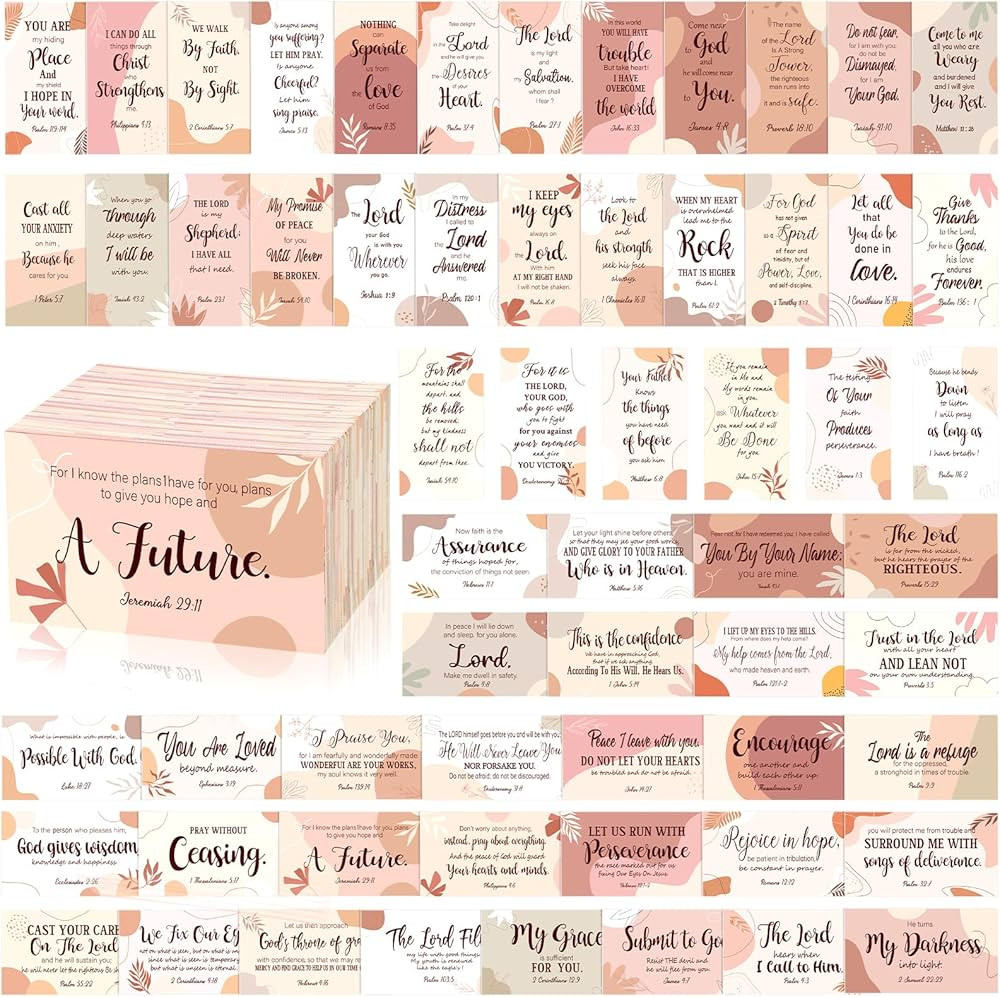 YOU ARE
my hiding
Place
And
my shield
I HOPE IN
Your word.
Psalm 119:114
I CAN DO ALL
things through
Christ
who
Strengthens
me.
Philippians 4:13
WE WALK
By Faith,
NOT
By Sight.
2 Corinthians 5:7
Is anyone among
you suffering?
LET HIM PRAY.
Is anyone
Cheerful?
Let him
sing praise.
James 5:13
NOTHING
can
Separate
us from
the love
of God
Romans 8:35
Take delight
in the Lord
and he will give you
the Desires
of your
Heart.
Psalm 37:4
The Lord
is my light
and
my Salvation,
whom shall
I fear?
Psalm 27:1
In this world
YOU WILL HAVE
trouble
But take heart!
I HAVE
OVERCOME
the world
John 16:33
Come near
to God
and
he will come near
to You.
James 4:8
The name
of the Lord
Is A Strong
Tower,
the righteous
man runs into
it and is safe.
Proverb 18:10
Do not fear,
for I am with you;
do not be
Dismayed,
for I am
Your God.
Isaiah 41:10
Come to me
all you who are
Weary
and burdened
and I will give
You Rest.
Matthew 11:28
Cast all
YOUR ANXIETY
on him,
Because he
cares for you
1 Peter 5:7
When you go
through
deep waters
I will be
with you.
Isaiah 43:2
THE LORD
is my
Shepherd;
I HAVE ALL
that I need.
Psalm 23:1
My Promise
OF PEACE
for you
Will Never
BE BROKEN.
Isaiah 54:10
The Lord
your God
is with you
Wherever
you go.
Joshua 1:9
In my
Distress
I called to
the Lord
and he
Answered
me.
Psalm 120:1
I KEEP
my eyes
always on
the Lord.
With him
AT MY RIGHT HAND
I will not be shaken.
Psalm 16:8
Look to
the Lord
and
his strength
seek his face
always.
1 Chronicles 16:11
WHEN MY HEART
is overwhelmed
lead me to the
Rock
THAT IS HIGHER
than I.
Psalm 61:2
For God
has not given
us a Spirit
of fear and
timidity, but of
Power, Love,
and self-discipline.
2 Timothy 1:7
Let all
that
You do be
done in
love.
1 Corinthians 16:14
Give
Thanks
to the Lord,
for he is Good,
his love
endures
Forever.
Psalm 136:1
For the
mountains shall
depart, and
the hills
be removed;
but my kindness
shall not
depart from thee.
Isaiah 54:10
For it is
THE LORD,
YOUR GOD,
who goes with
you to fight
for you against
your enemies
and give
YOU VICTORY.
Deuteronomy
Your Father
Knows
the things
you have need
of before
you ask him
Matthew 6:8
If you remain
in Me and
My words remain
in you,
ask Whatever
you want and it will
Be Done
for you.
John 15:7
The testing
Of Your
faith
Produces
perseverance.
James 1:3
Because he bends
Down
to listen,
I will pray
as long as
I have breath!
Psalm 116:2
For I know the plans I have for you, plans
to give you hope and
A Future.
Jeremiah 29:11
Now faith is the
Assurance
of things hoped for,
the conviction of things not seen
Hebrews 11:1
Let your light shine before others
so that they may see your good works
AND GIVE GLORY TO YOUR FATHER
Who is in Heaven.
Matthew 5:16
Fear not, for I have redeemed you; I have called
You By Your Name;
you are mine.
Isaiah 43:1
The Lord
is far from the wicked,
but he hears the prayer of the
RIGHTEOUS.
Proverbs 15:29
In peace I will lie down
and sleep, for you alone.
Lord,
Make me dwell in safety.
Psalm 4:8
This is the confidence
We have in approaching God,
that if we ask anything
According To His Will, He Hears Us.
1 John 5:14
I LIFT UP MY EYES TO THE HILLS.
From where does my help come?
My help comes from the Lord,
who made heaven and earth.
Psalm 121:1-2
Trust in the Lord
with all your heart
AND LEAN NOT
on your own understanding.
Proverbs 3:5
What is impossible with people, is
Possible With God.
Luke 18:27
You Are Loved
beyond measure.
Ephesians 3:19
I Praise You,
for I am fearfully and wonderfully made
WONDERFUL ARE YOUR WORKS,
my soul knows it very well.
Psalm 139:14
The LORD himself goes before you and will be with you;
He Will Never Leave You
NOR FORSAKE YOU.
Do not be afraid; do not be discouraged.
Deuteronomy 31:8
Peace I leave with you.
DO NOT LET YOUR HEARTS
be troubled and do not be afraid.
John 14:27
Encourage
one another and
build each other up.
1 Thessalonians 5:11
The
Lord is a refuge
for the oppressed,
a stronghold in times of trouble.
Psalm 9:9
To the person who pleases him,
God gives wisdom,
knowledge and happiness
Ecclesiastes 2:26
PRAY WITHOUT
Ceasing.
1 Thessalonians 5:17
For I know the plans I have for you, plans
to give you hope and
A Future.
Jeremiah 29:11
Don't worry about anything,
instead, pray about everything.
And the peace of God will guard
Your hearts and minds.
Philippians 4:6
LET US RUN WITH
Perseverance
the race marked out for us
fixing Our Eyes On Jesus
Hebrews 12:1-2
Rejoice in hope,
be patient in tribulation,
be constant in prayer.
Romans 12:12
you will protect me from trouble and
SURROUND ME WITH
songs of deliverance.
Psalm 32:7
CAST YOUR CARE
On The Lord
and he will sustain you;
he will never let the righteous Be
Psalm 55:22
We Fix Our Ey
not on what is seen, but on what is
since what is seen is temporary
but what is unseen is eternal.
2 Corinthians 4:18
Let us then approach
God's throne of gra
with confidence, so that we may re
MERCY AND FIND GRACE TO HELP US IN OUR TIME
Hebrews 4:16
The Lord Fil
my life with good things
My youth is renewed
like the eagle's!
Psalm 103:5
My Grace
is sufficient
FOR YOU.
2 Corinthians 12:9
Submit to Go
Resist THE devil and
he will flee from you.
James 4:7
The Lord
hears when
I Call to Him.
Psalm 4:3
He turns
My Darkness
into light.
2 Samuel 22:29